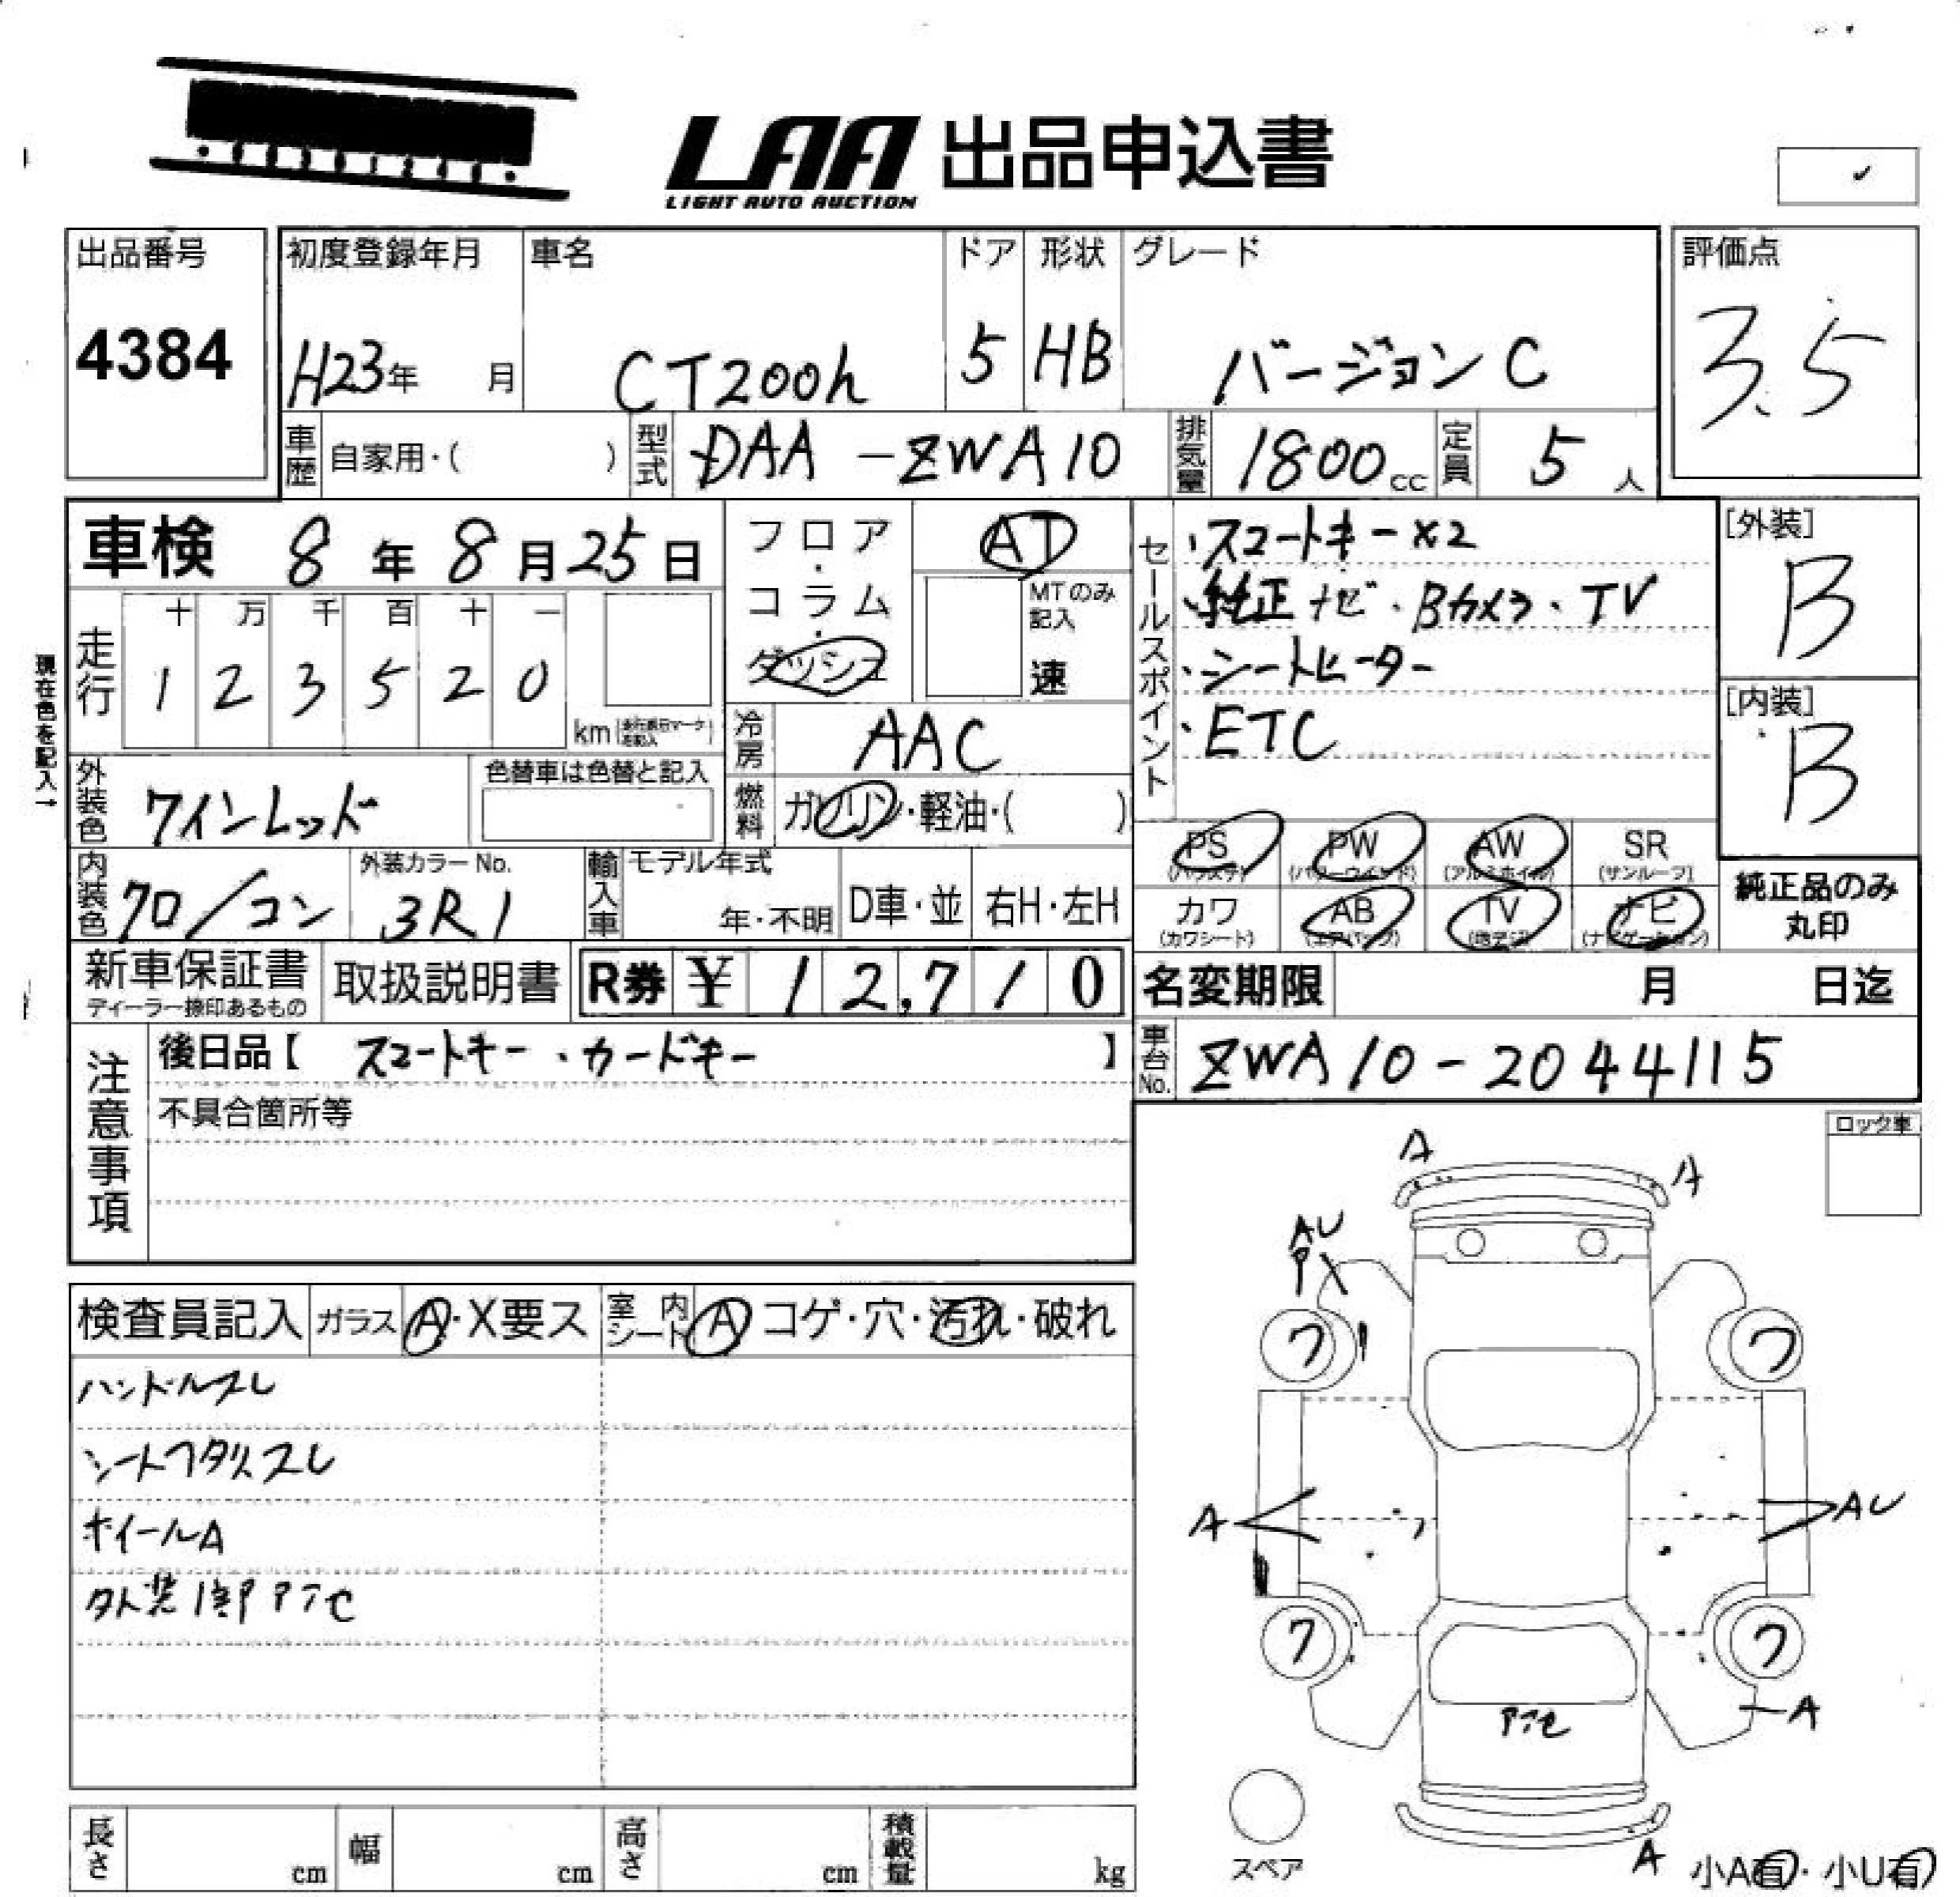 LAA 出品申込書
LIGHT AUTO AUCTION
出品番号
4384
初度登録年月
H23年 月
車名
CT200h
ドア
5
形状
HB
グレード
バージョン C
評価点
3.5
車歴 自家用・( )
型式 DAA-ZWA10
排気量 1800cc
定員 5人
車検 8年8月25日
フロア・コラム・ダッシュ
AT
MTのみ記入
速
セールスポイント
・スマートキー×2
・純正ナビ・Bカメラ・TV
・シートヒーター
・ETC
[外装]
B
[内装]
B
現在色を記入→
走行
十 万 千 百 十 一
1 2 3 5 2 0
km
冷房 AAC
外装色 ワインレッド
色替車は色替と記入
燃料 ガソリン・軽油・( )
PS (パワステ)
PW (パワーウインド)
AW (アルミホイル)
SR (サンルーフ)
カワ (カワシート)
AB (エアバッグ)
TV (地デジ)
ナビ (ナビゲーション)
純正品のみ丸印
内装色 クロ/コン
外装カラーNo.
3R1
輸入車
モデル年式
年・不明
D車・並
右H・左H
新車保証書
ディーラー捺印あるもの
取扱説明書
R券 ¥ 12,710
名変期限 月 日迄
注意事項
後日品【 スマートキー、カードキー 】
不具合箇所等
車台No. ZWA10-2044115
ロック車
検査員記入
ガラス A・X要ス
室内シート A コゲ・穴・汚れ・破れ
ハンドルスレ
シートヘタリスレ
ホイールA
外装1部アアセ
A
A
AU
ワ
ワ
A
AU
ワ
ワ
アアセ
A
A
スペア
小A有・小U有
長さ cm
幅 cm
高さ cm
積載量 kg